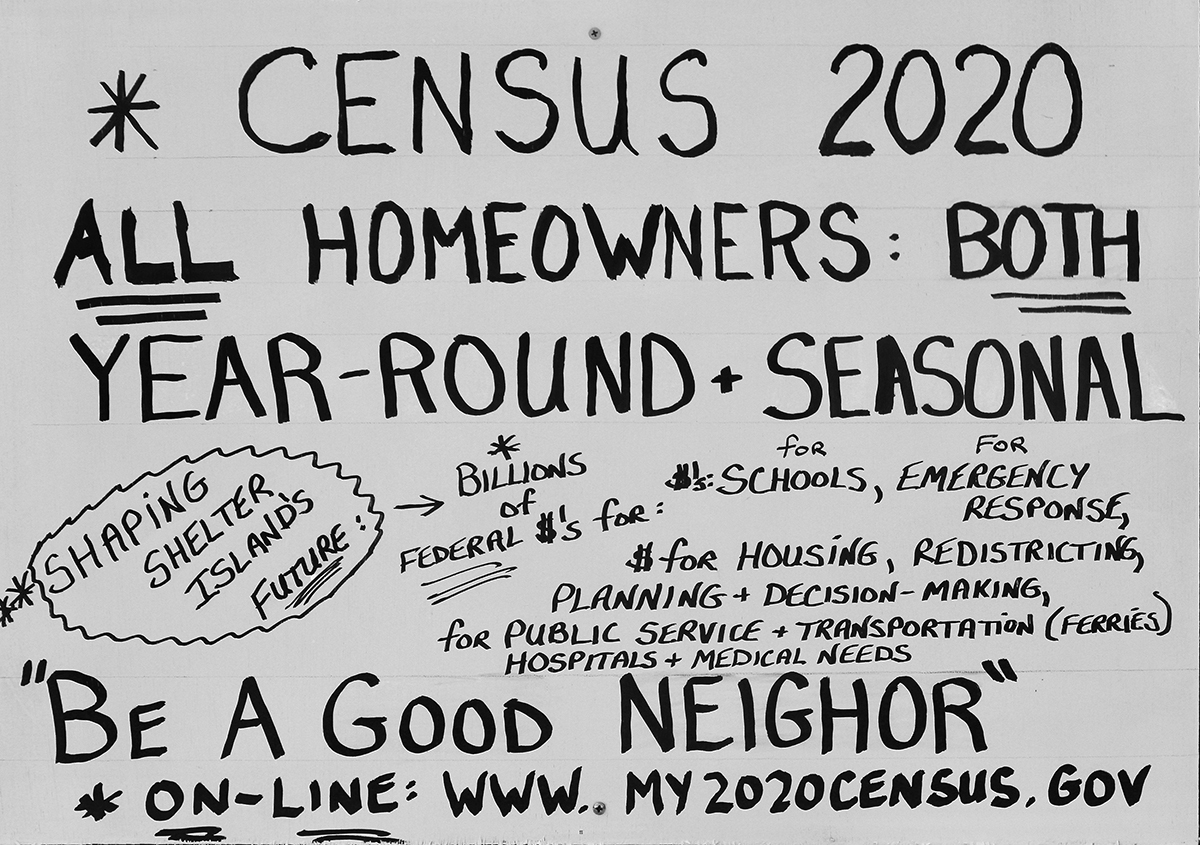 * CENSUS 2020
ALL HOMEOWNERS: BOTH
YEAR-ROUND + SEASONAL
** SHAPING
SHELTER
ISLAND'S
FUTURE:
→ * BILLIONS
of
FEDERAL $'s for:
for FOR
$'s: SCHOOLS, EMERGENCY
RESPONSE,
$ for HOUSING, REDISTRICTING,
PLANNING + DECISION-MAKING,
for PUBLIC SERVICE + TRANSPORTATION (FERRIES)
HOSPITALS + MEDICAL NEEDS
"BE A GOOD NEIGHOR"
* ON-LINE: WWW. MY2020CENSUS.GOV